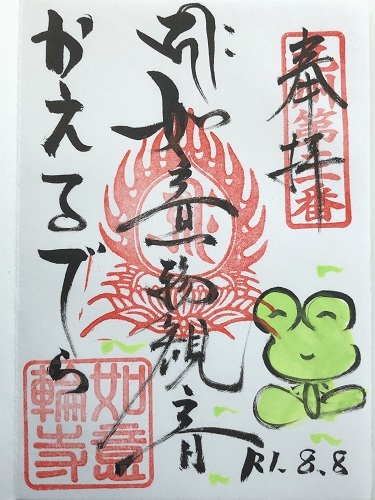 奉拝
如意輪観音
かえるでら
如意輪寺
R1.8.8